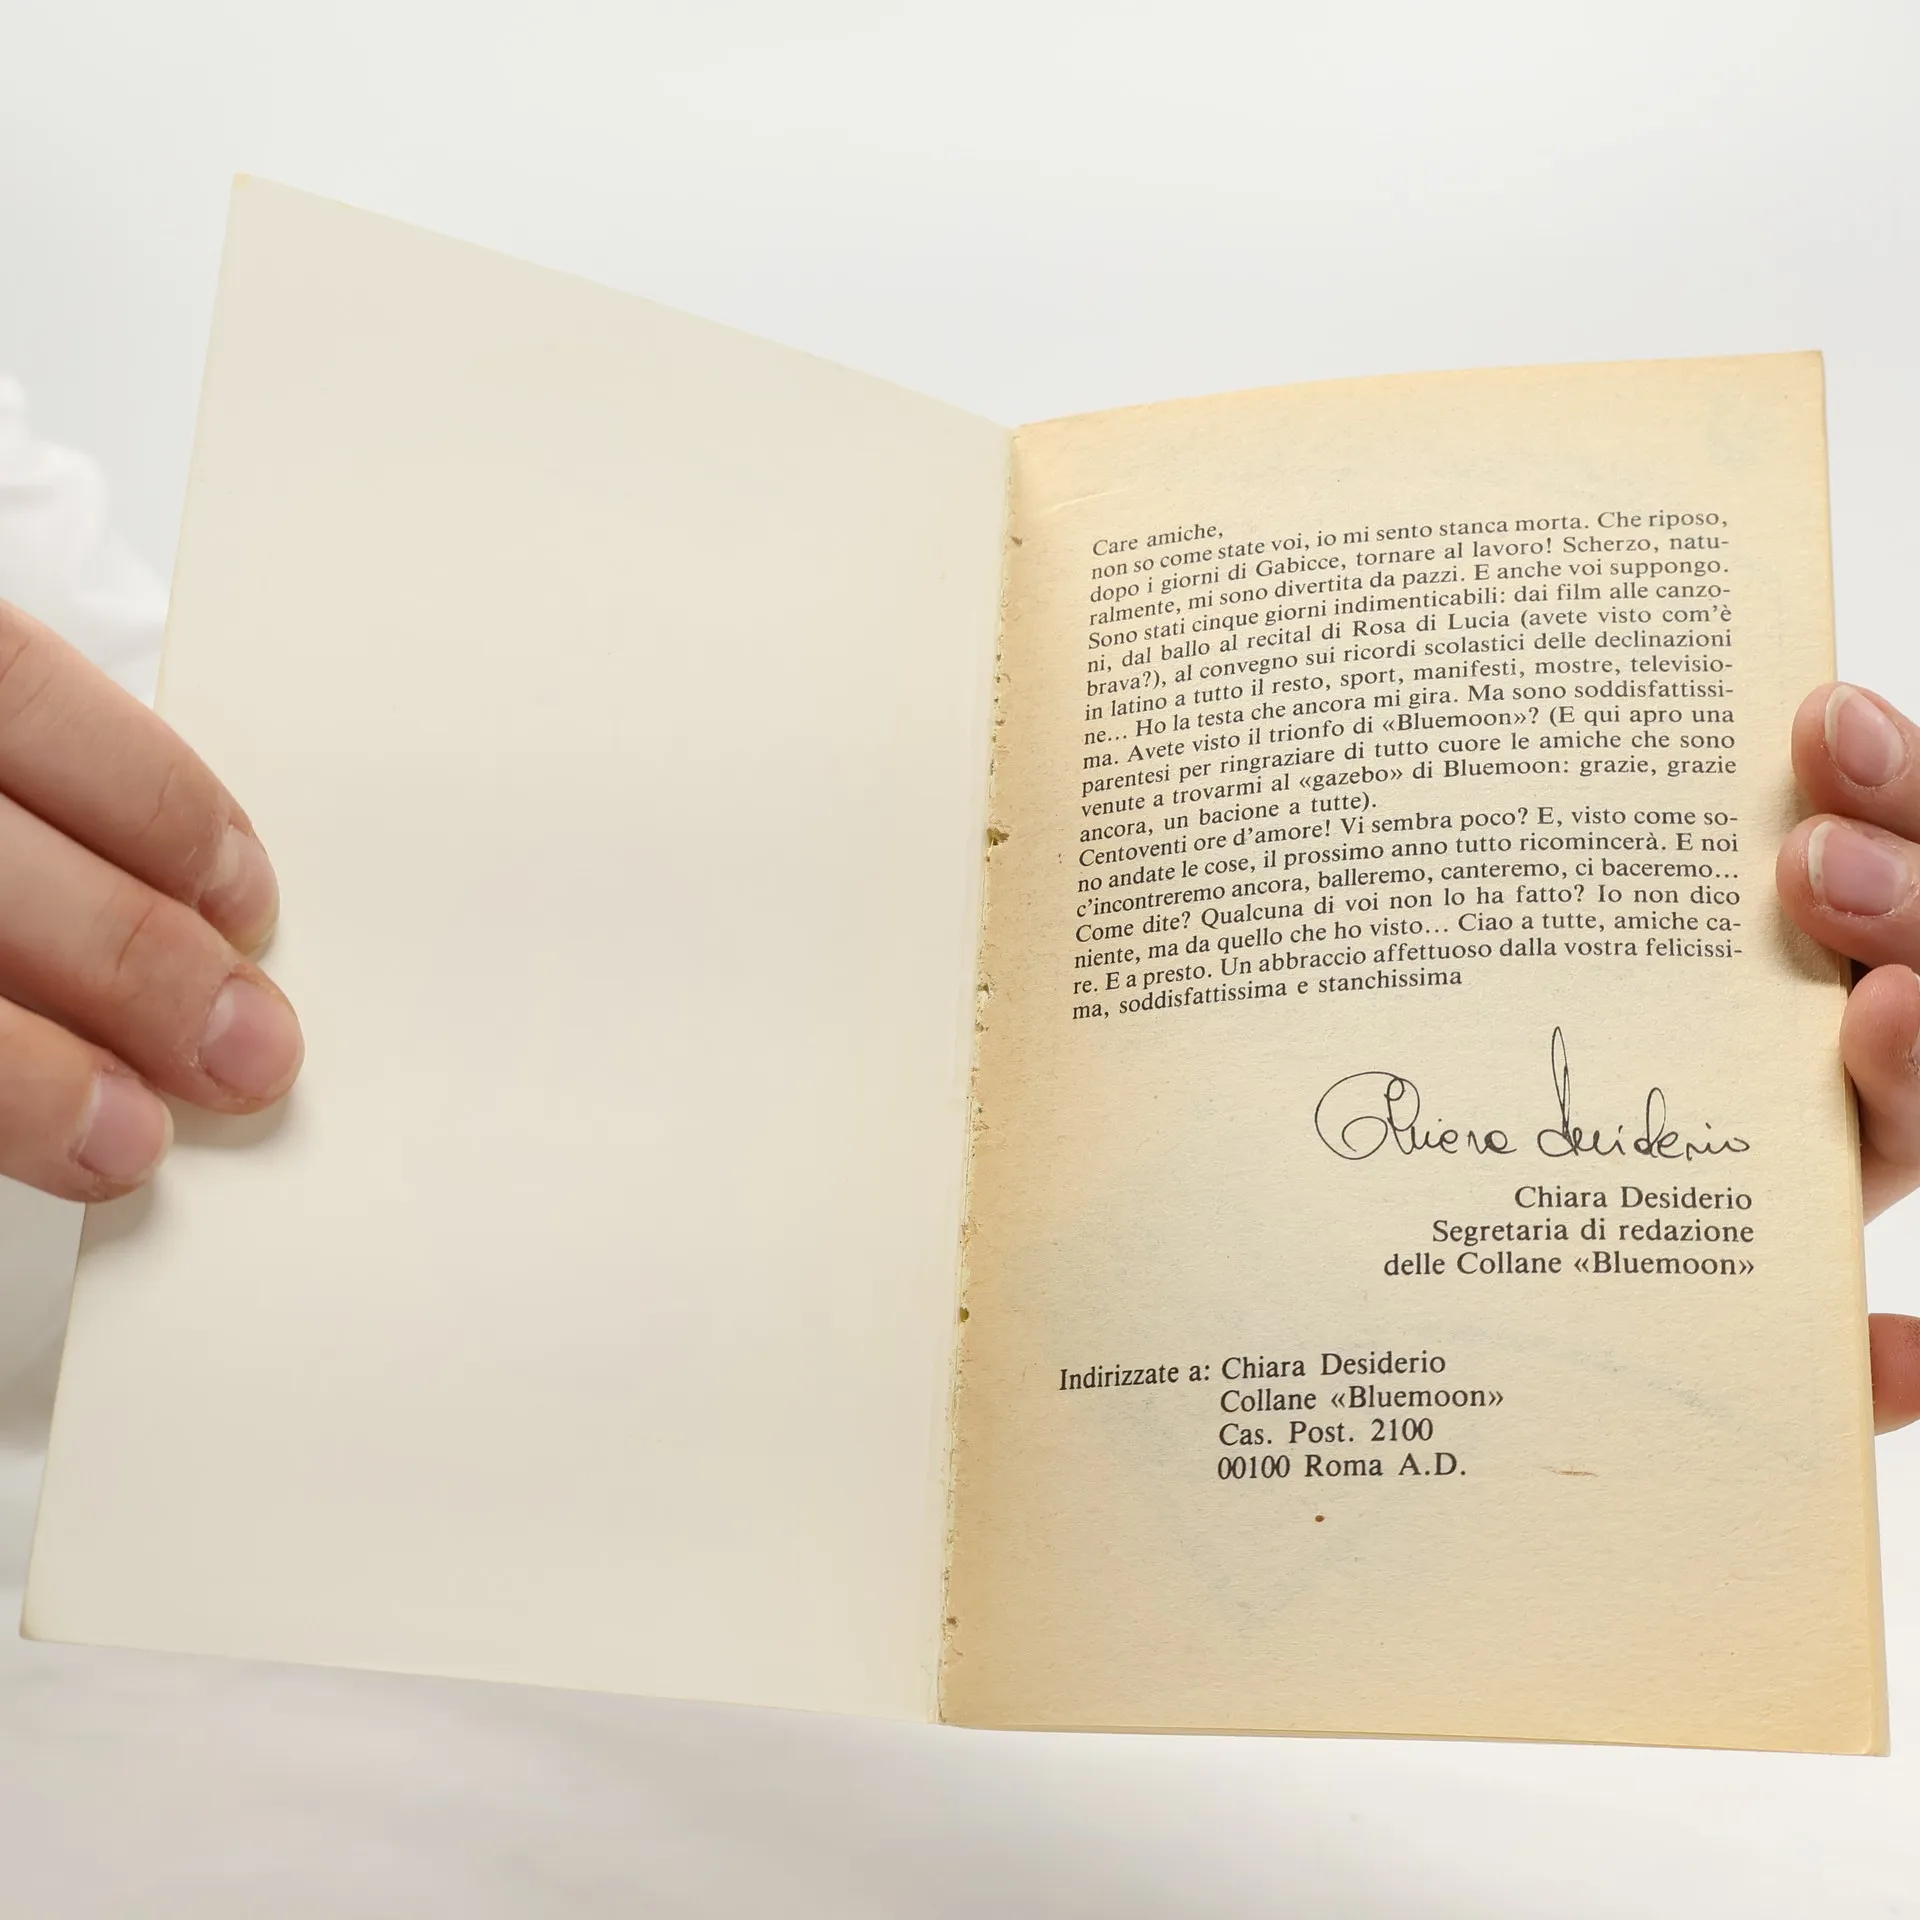 Care amiche,
non so come state voi, io mi sento stanca morta. Che riposo,
dopo i giorni di Gabicce, tornare al lavoro! Scherzo, natu-
ralmente, mi sono divertita da pazzi. E anche voi suppongo.
Sono stati cinque giorni indimenticabili: dai film alle canzo-
ni, dal ballo al recital di Rosa di Lucia (avete visto com'è
brava?), al convegno sui ricordi scolastici delle declinazioni
in latino a tutto il resto, sport, manifesti, mostre, televisio-
ne... Ho la testa che ancora mi gira. Ma sono soddisfattissi-
ma. Avete visto il trionfo di «Bluemoon»? (E qui apro una
parentesi per ringraziare di tutto cuore le amiche che sono
venute a trovarmi al «gazebo» di Bluemoon: grazie, grazie
ancora, un bacione a tutte).
Centoventi ore d'amore! Vi sembra poco? E, visto come so-
no andate le cose, il prossimo anno tutto ricomincerà. E noi
c'incontreremo ancora, balleremo, canteremo, ci baceremo...
Come dite? Qualcuna di voi non lo ha fatto? Io non dico
niente, ma da quello che ho visto... Ciao a tutte, amiche ca-
re. E a presto. Un abbraccio affettuoso dalla vostra felicissi-
ma, soddisfattissima e stanchissima
Chiara Desiderio
Chiara Desiderio
Segretaria di redazione
delle Collane «Bluemoon»
Indirizzate a: Chiara Desiderio
Collane «Bluemoon»
Cas. Post. 2100
00100 Roma A.D.